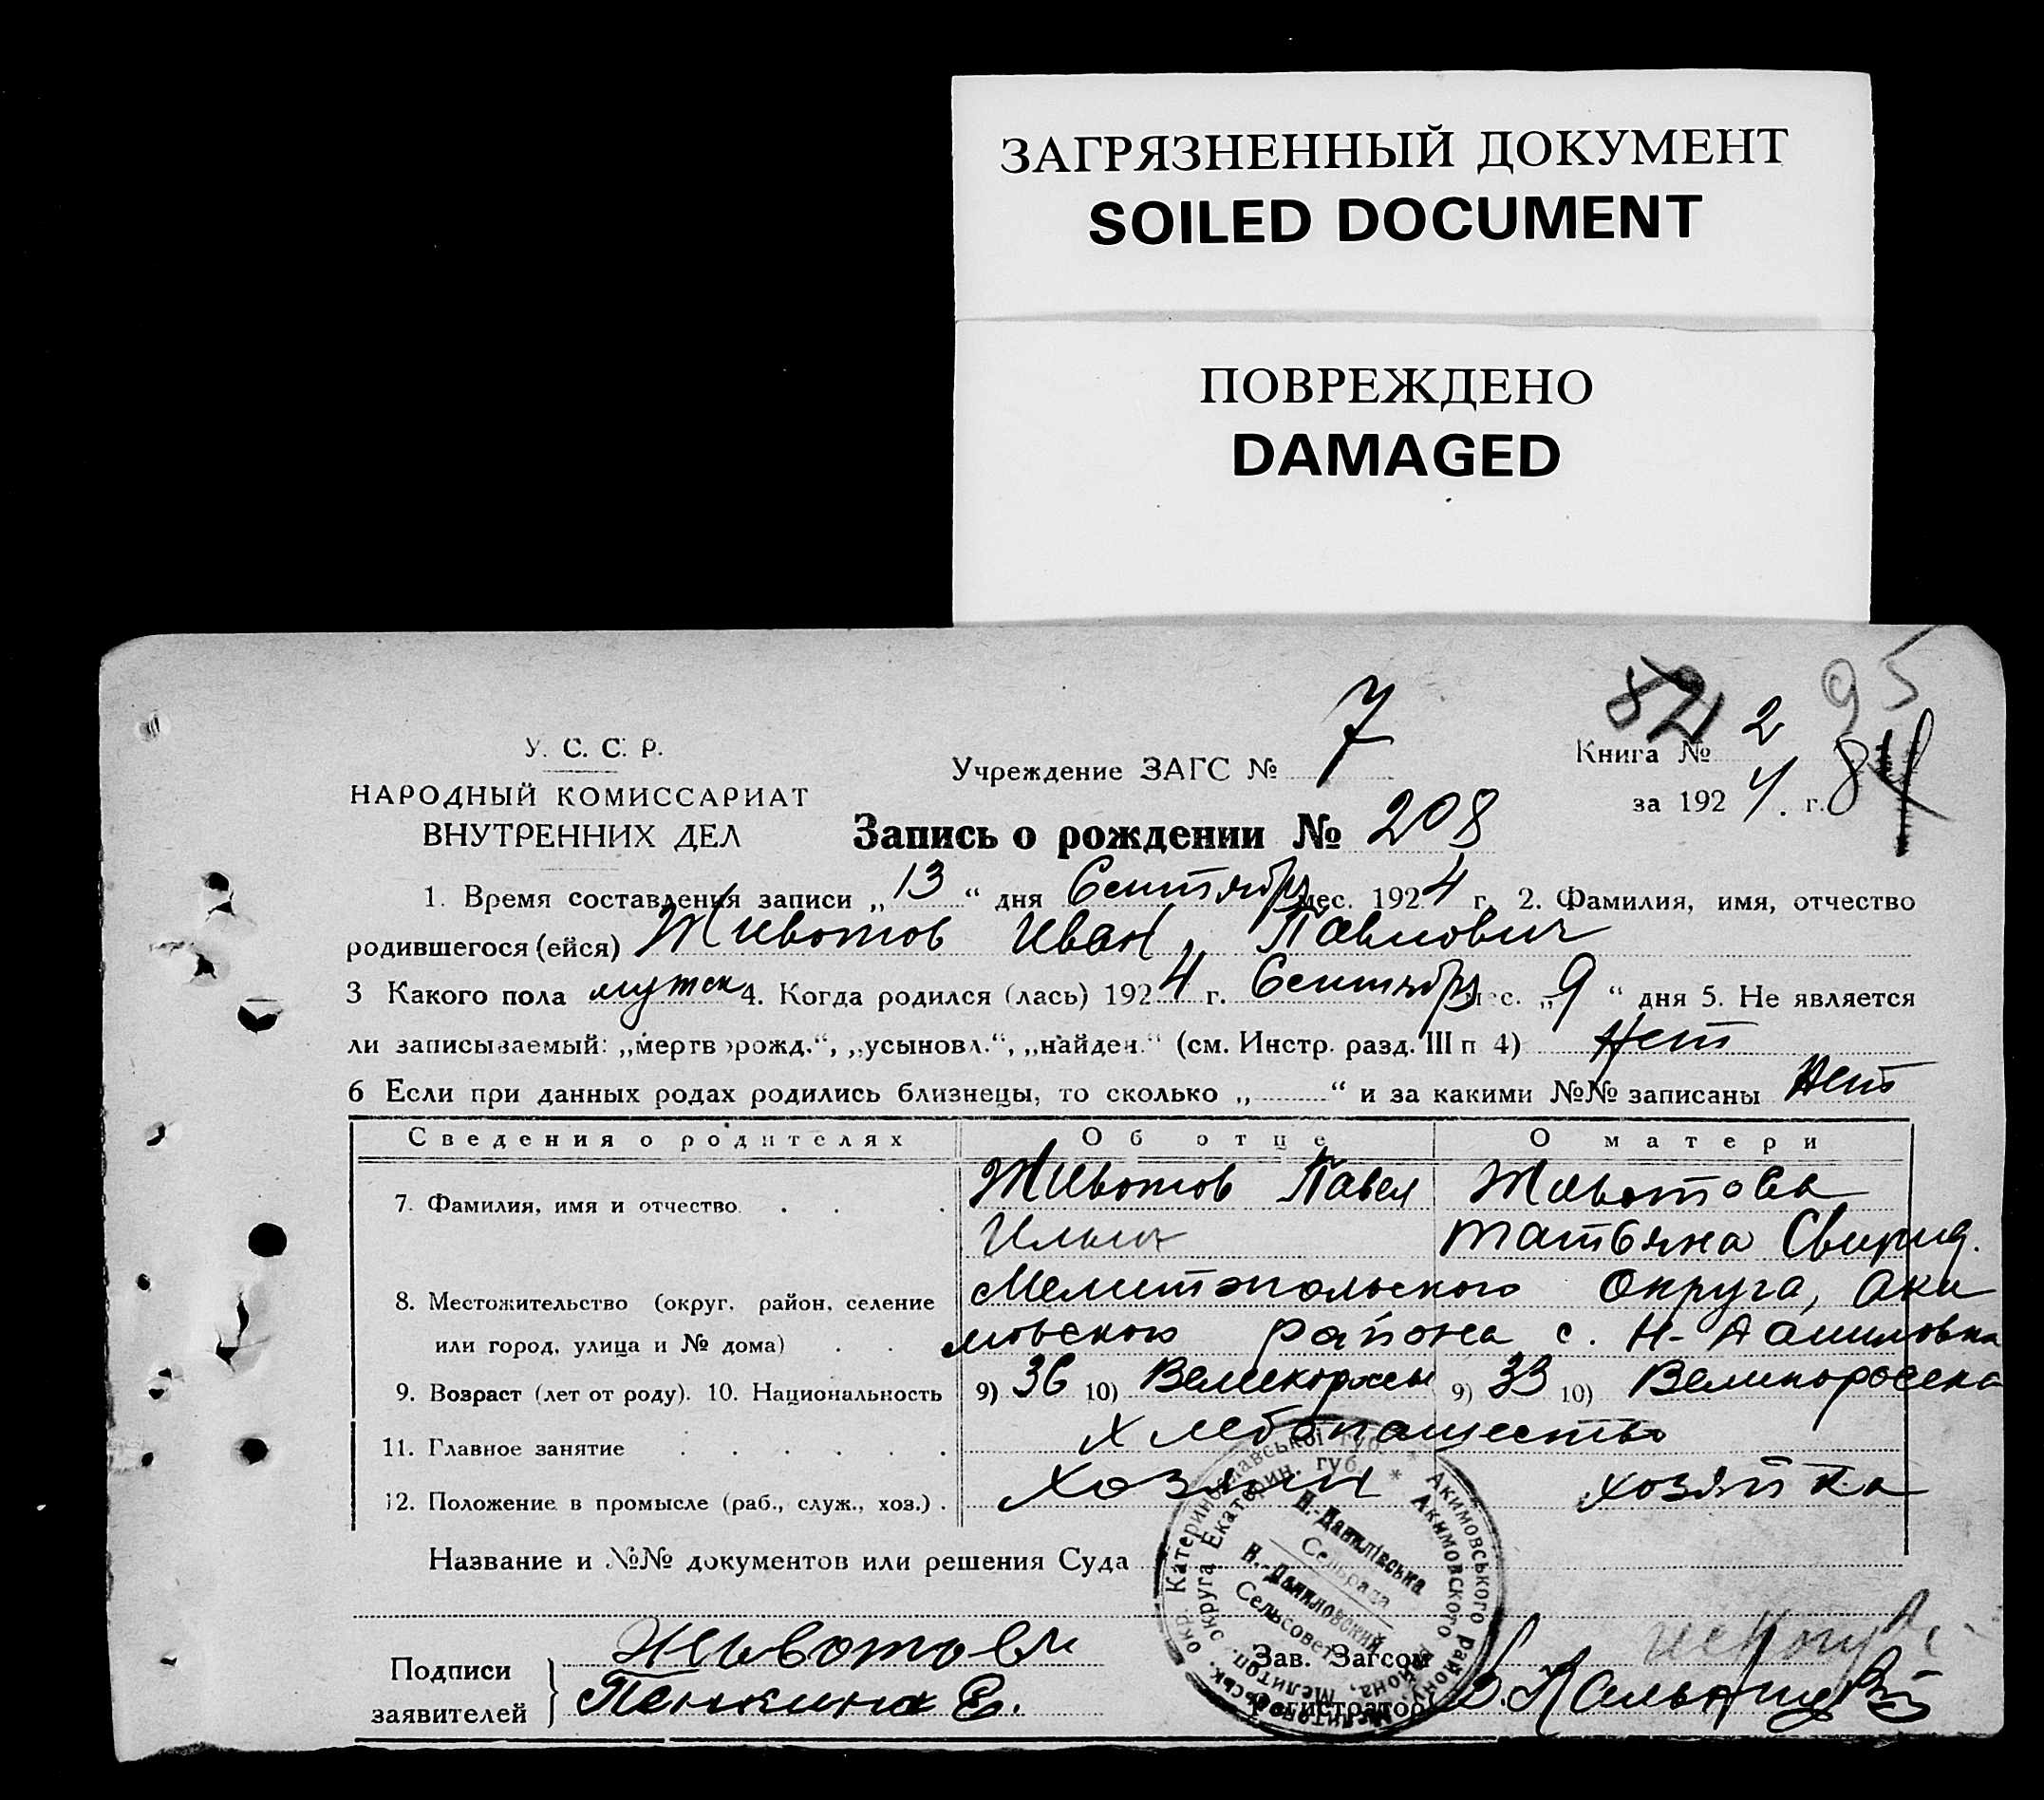 ЗАГРЯЗНЕННЫЙ ДОКУМЕНТ
SOILED DOCUMENT
ПОВРЕЖДЕНО
DAMAGED
82 95
У. С. С. Р.
НАРОДНЫЙ КОМИССАРИАТ
ВНУТРЕННИХ ДЕЛ
Учреждение ЗАГС № 7
Книга № 2
за 192 4. г. 84
Запись о рождении № 208
1. Время составления записи „13“ дня Сентябр мес. 1924 г. 2. Фамилия, имя, отчество
родившегося (ейся) Животов Иван Павлович
3 Какого пола мужск 4. Когда родился (лась) 1924 г. Сентябр мес. „9“ дня 5. Не является
ли записываемый: „мертворожд.“, „усыновл.“, „найден.“ (см. Инстр. разд. III п 4) Нет
6 Если при данных родах родились близнецы, то сколько „ “ и за какими №№ записаны Нет
Сведения о родителях Об отце О матери
7. Фамилия, имя и отчество Животов Павел Животова
Ильич Татьяна Свирид.
8. Местожительство (округ, район, селение Мелитопольского Округа, Аки
или город, улица и № дома) мовского района с. Н-Даниловка
9. Возраст (лет от роду). 10. Национальность 9) 36 10) 9) 33 10) Великоросска
11. Главное занятие Хлебопашество
12. Положение в промысле (раб., служ., хоз.). хозяин хозяйка
Название и №№ документов или решения Суда
Катеринославської губ. * Акимовського району,
Екатерин. губ. * Акимовского района, Мелитоп. округа
Н.-Данилівська
Сельрада
Н.-Даниловский
Сельсовет
Подписи
заявителей
Животов
Пенкина Е.
Зав. Загсом
Регистратор